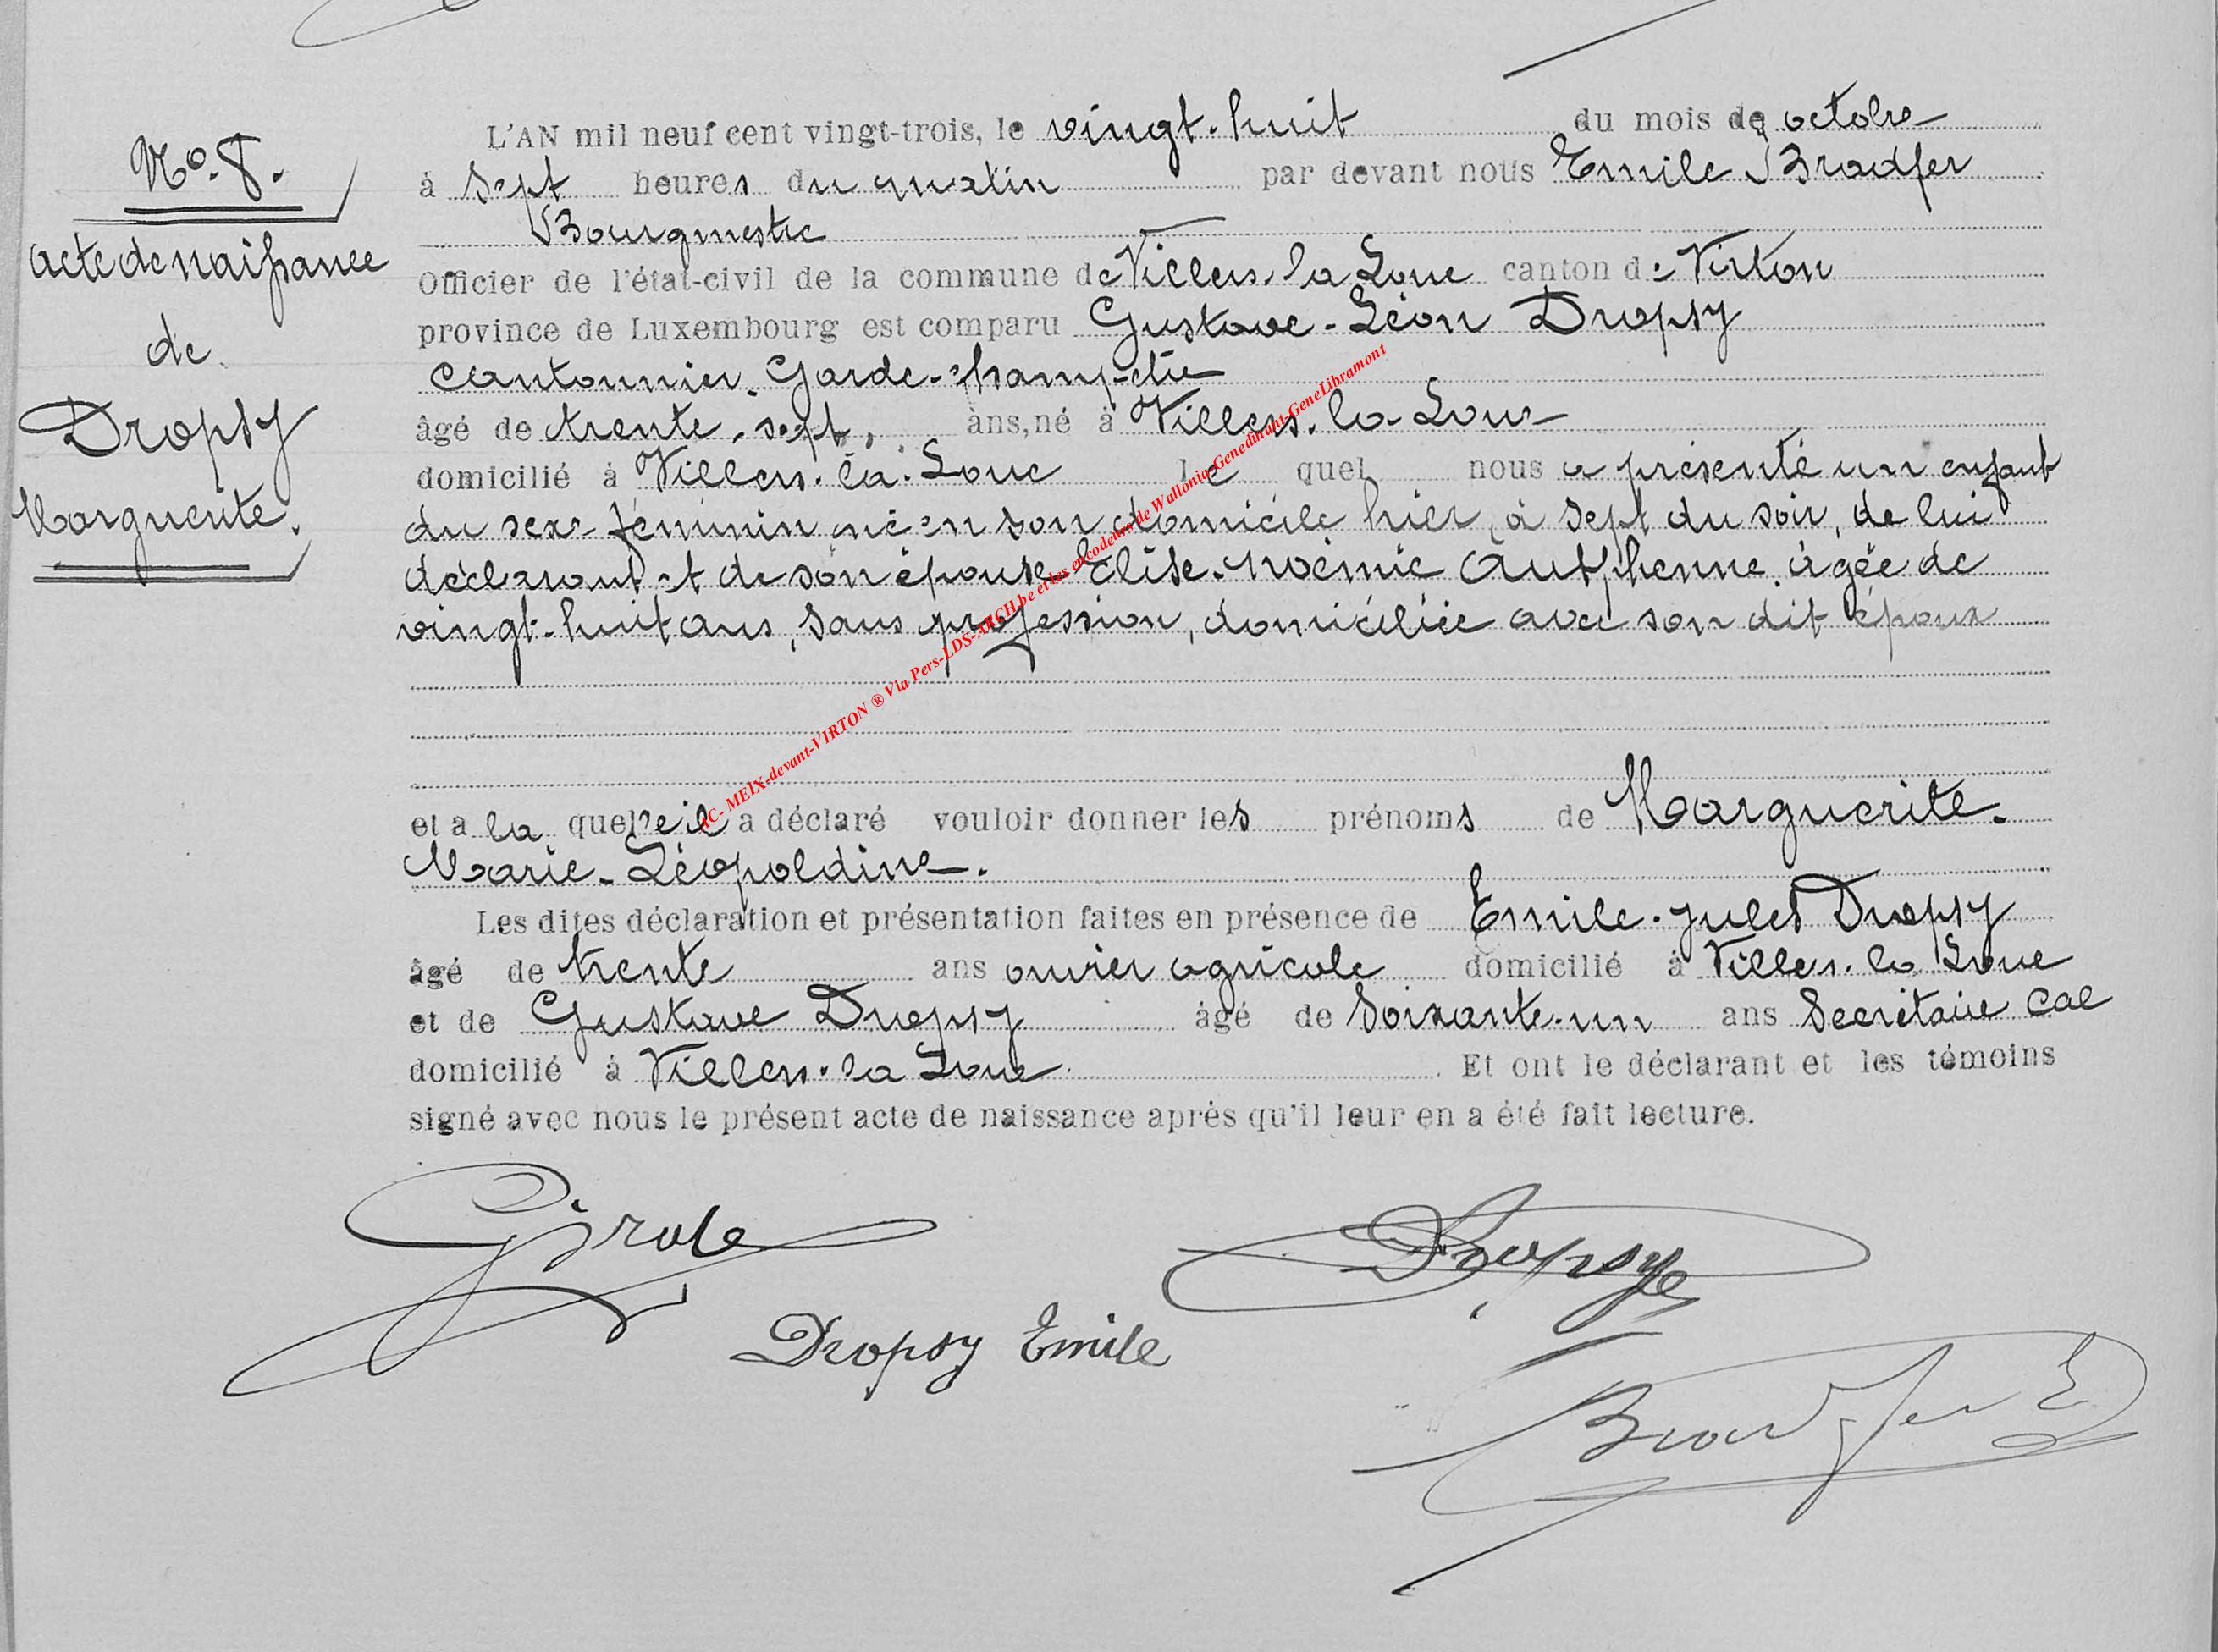 No. 8.
Acte de naissance
de
Dropsy
Marguerite.
L'AN mil neuf cent vingt-trois, le vingt-huit du mois de octobre
à sept heures du matin par devant nous Emile Bradfer
Bourgmestre
Officier de l'état-civil de la commune de Villers-la-Loue canton de Virton
province de Luxembourg est comparu Gustave-Léon Dropsy
Cantonnier-Garde-champêtre
âgé de trente-sept ans, né à Villers-la-Loue
domicilié à Villers-la-Loue lequel nous a présenté un enfant
du sexe féminin né en son domicile hier, à sept du soir, de lui
déclarant et de son épouse Elise-Noémie Authenne, âgée de
vingt-huit ans, sans profession, domiciliée avec son dit époux
et a la quelle il a déclaré vouloir donner les prénoms de Marguerite-
Marie-Léopoldine.
Les dites déclaration et présentation faites en présence de Emile-Jules Dropsy
âgé de trente ans ouvrier agricole domicilié à Villers-la-Loue
et de Gustave Dropsy âgé de soixante-un ans Secrétaire cal
domicilié à Villers-la-Loue. Et ont le déclarant et les témoins
signé avec nous le présent acte de naissance après qu'il leur en a été fait lecture.
Dropsy
Dropsy Emile
Bradfer E
AC- MEIX-devant-VIRTON ® Via Pers-LDS-ARCH.be et les encodeurs de Wallonia-Genedinant-GeneLibramont